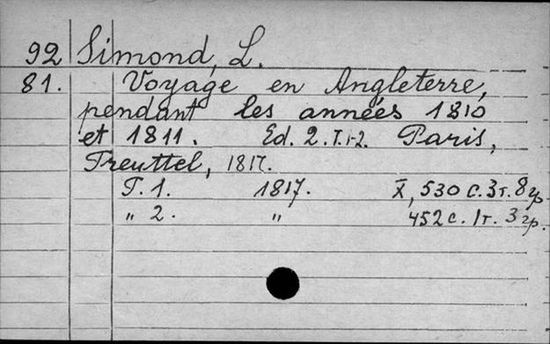 92 Simond, L.
81. Voyage en Angleterre,
pendant les années 1810
et 1811. Ed. 2. T. 1-2. Paris,
Treuttel, 1817.
T. 1. 1817. X, 530 с. 3 т. 8 гр.
„ 2. „ 452 с. 1 т. 3 гр.